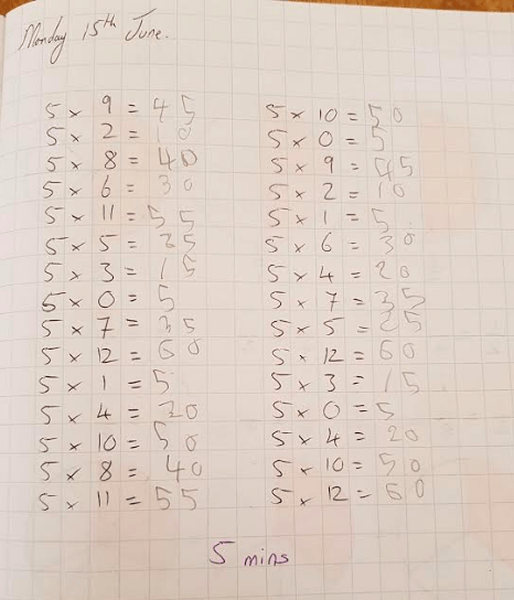 Monday 15th June.
5 × 9 = 45
5 × 2 = 10
5 × 8 = 40
5 × 6 = 30
5 × 11 = 55
5 × 5 = 25
5 × 3 = 15
5 × 0 = 5
5 × 7 = 35
5 × 12 = 60
5 × 1 = 5
5 × 4 = 20
5 × 10 = 50
5 × 8 = 40
5 × 11 = 55
5 × 10 = 50
5 × 0 = 5
5 × 9 = 45
5 × 2 = 10
5 × 1 = 5
5 × 6 = 30
5 × 4 = 20
5 × 7 = 35
5 × 5 = 25
5 × 12 = 60
5 × 3 = 15
5 × 0 = 5
5 × 4 = 20
5 × 10 = 50
5 × 12 = 60
5 mins